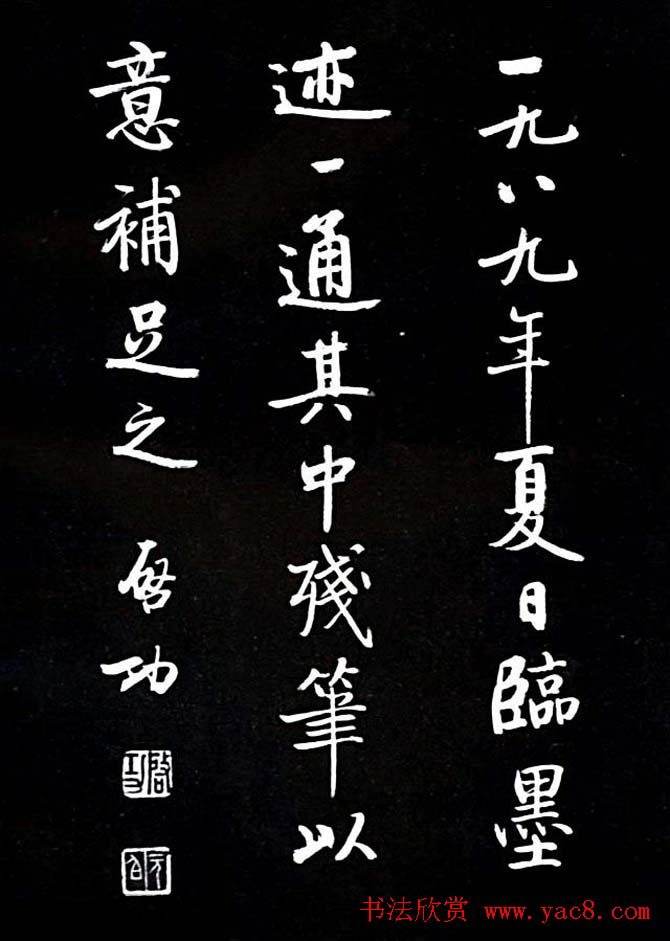 一九八九年夏日臨墨
迹一通其中殘筆以
意補足之 啓功
啓功
元白
书法欣赏 www.yac8.com